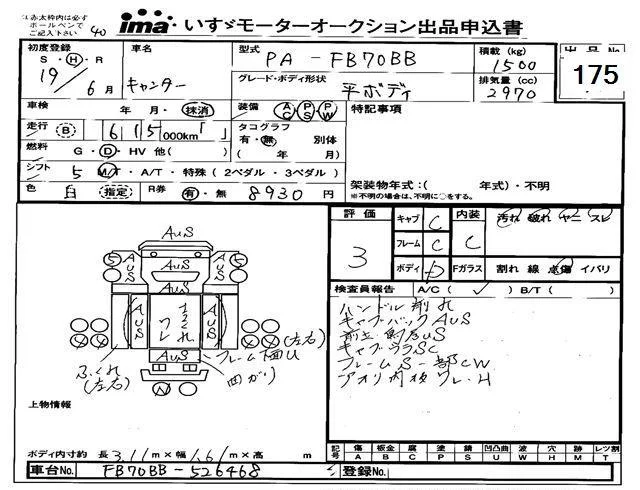 は赤太枠内は必ず
ボールペンで
ご記入下さい
40
ima いすゞモーターオークション出品申込書
初度登録
S・H・R
19年6月
車名
キャンター
型式
PA-FB70BB
グレード・ボディ形状
平ボディ
積載 (kg)
1500
排気量 (cc)
2970
175
車検
年 月・抹消
装備
AC PS PW
特記事項
走行 B 615 000km
タコグラフ
有・無 別体
( 年 月)
燃料 G・D・HV 他( )
シフト 5 M/T・A/T・特殊(2ペダル・3ペダル)
色 白 指定 R券 有・無 8930円
架装物年式:( 年式)・不明
※不明の場合は、不明に○をする。
評価
3
キャブ C
フレーム C
ボディ D
内装 C
汚れ 破れ ヤニ スレ
Fガラス 割れ 線 点傷 イバリ
AuS
5 AuS AuS 5
AuS AuS
AuS
(左右)
フレーム下面U
凹がり
ふくれ
(左右)
検査員報告 A/C( ✓ ) B/T( )
ハンドル削れ
キャブバックAUS
キャブウラSC
フレームS 一部CW
アオリ内板ワレ、H
上物情報
ボディ内寸約 長 3.11m×幅 1.61m×高 m
記号 傷 A 板金 B 腐 C 塗 P 錆 S 凹凸曲 U 波 W 穴 H 跡 M レツ割 T
車台No. FB70BB-526468
登録No.